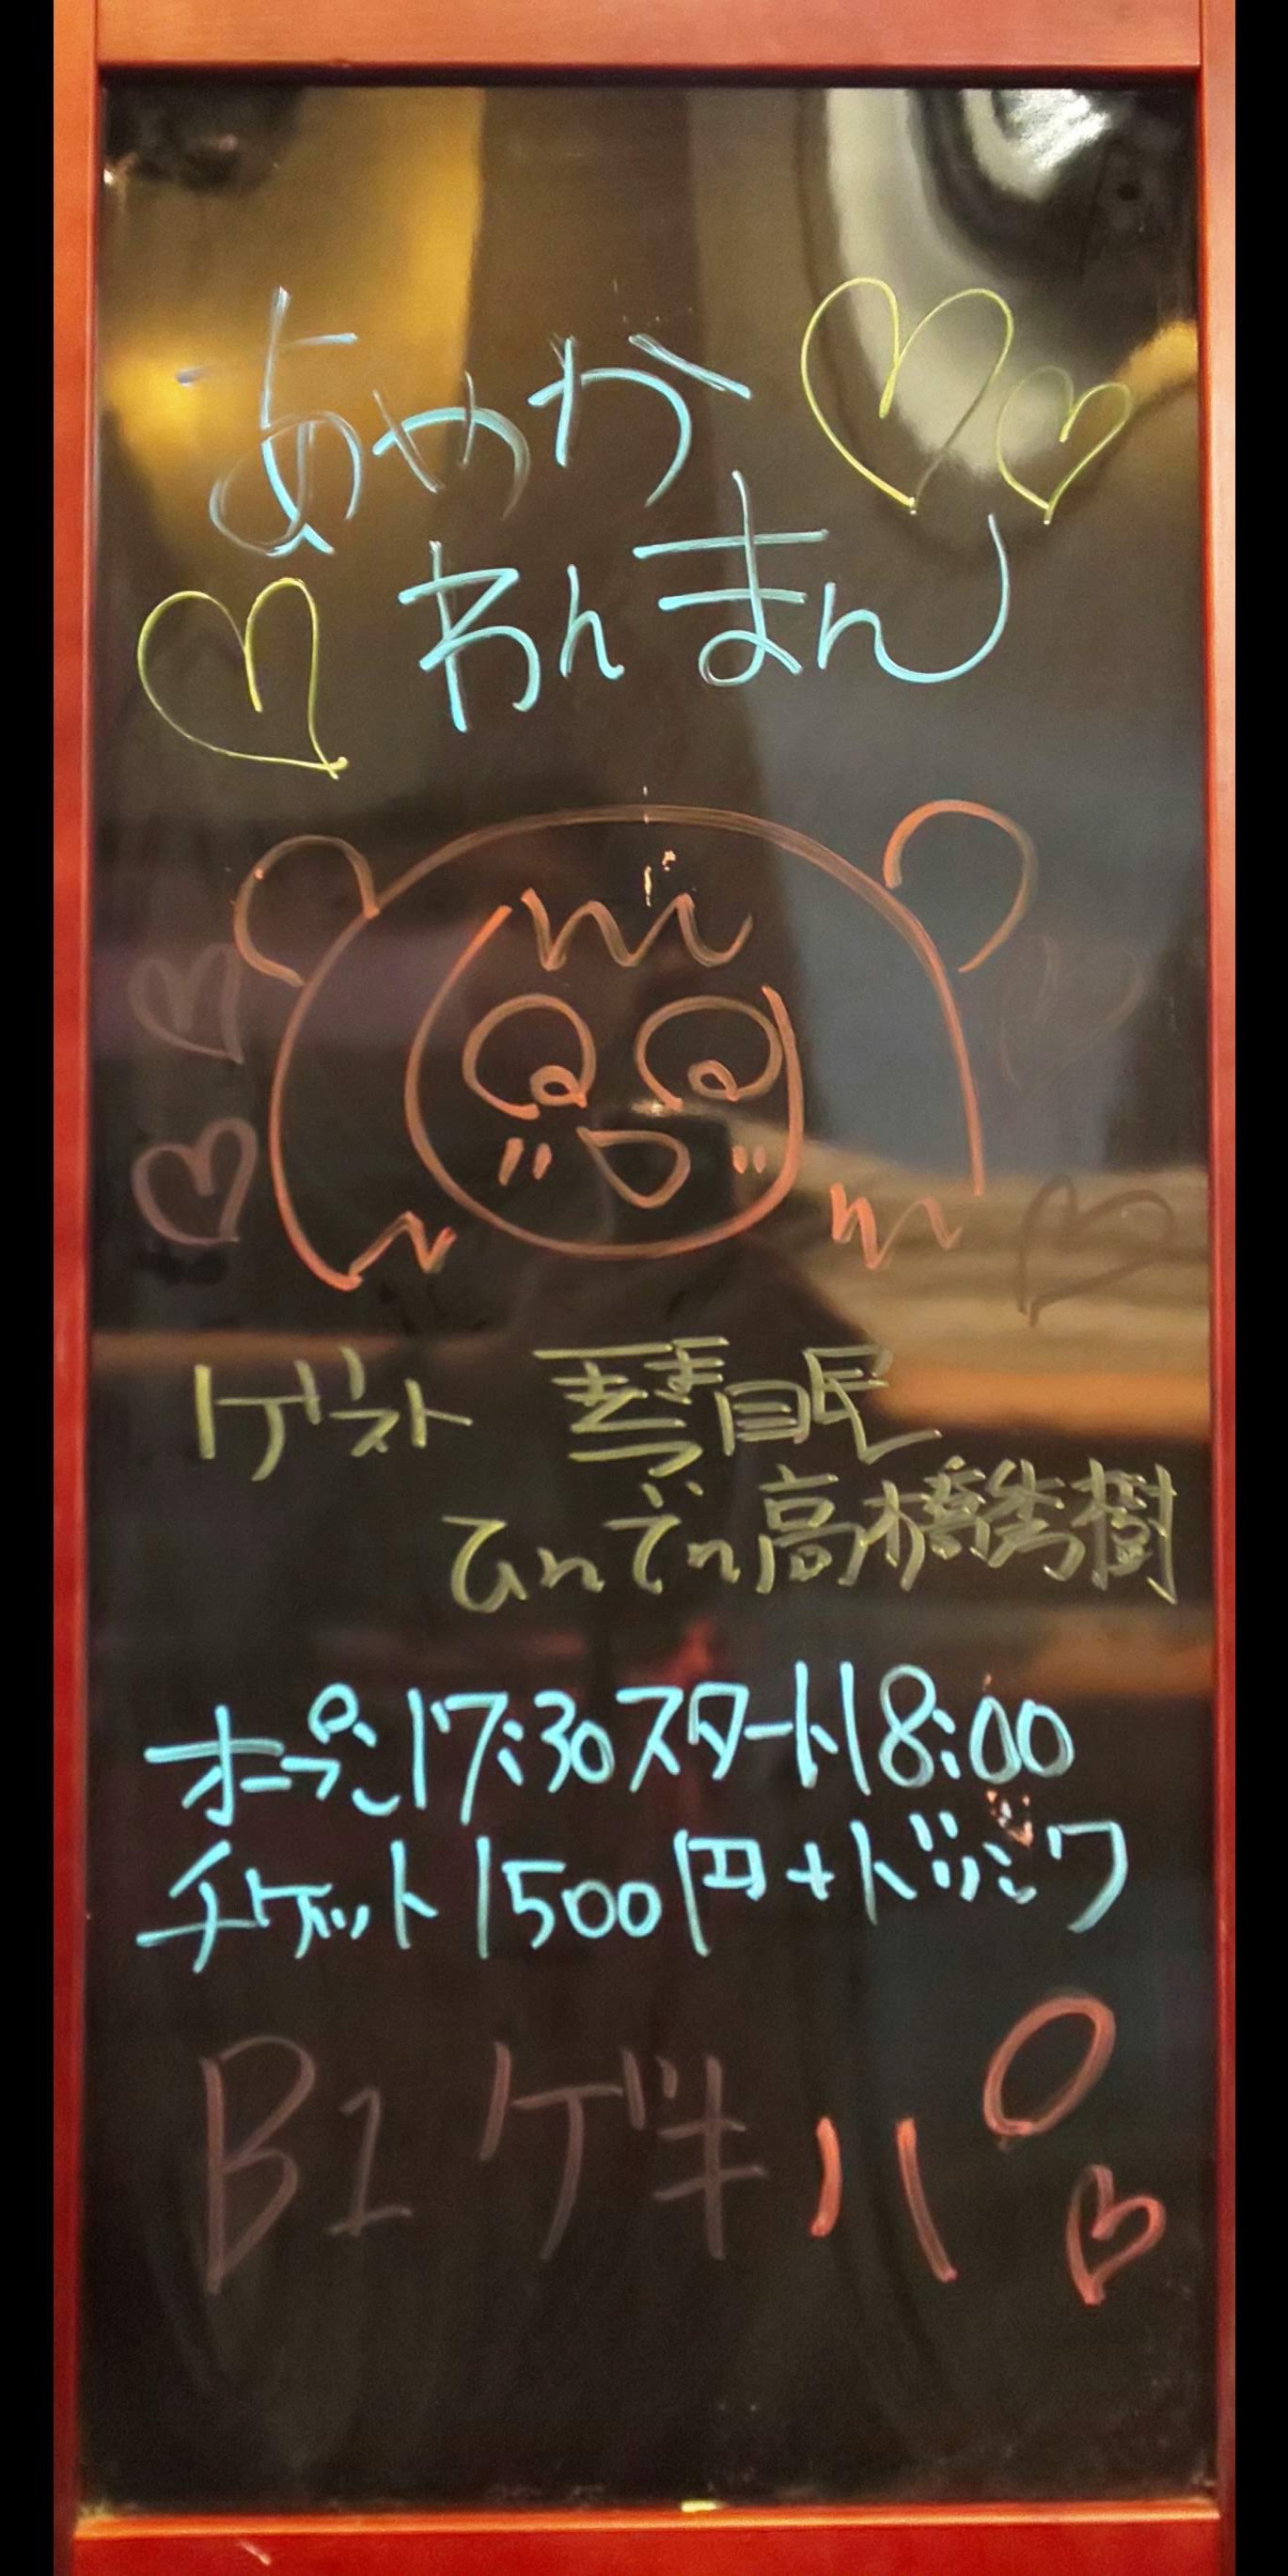 あやか
わんまん
ゲスト 琴眠
ひんでん高橋秀樹
オープン17:30スタート18:00
チケット1500円+ドリンク
B1 ゲキハ°